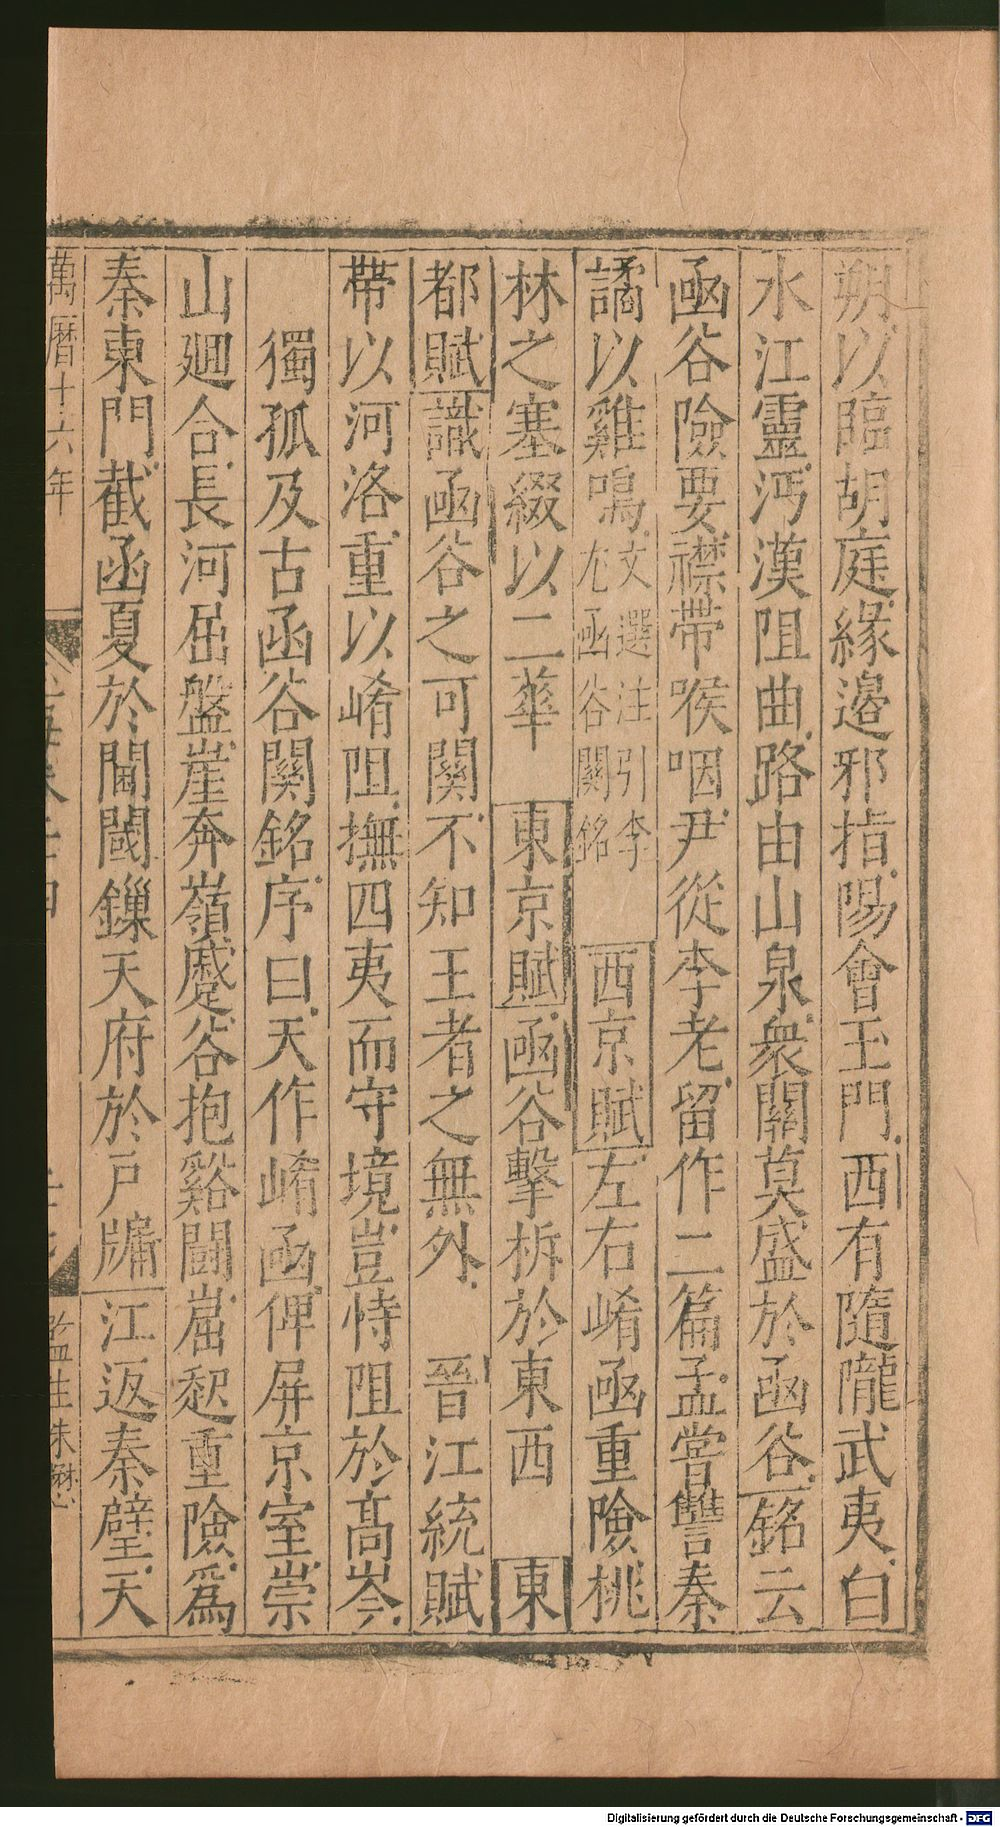 朔以臨胡庭緣邉邪指陽會玉門西有隨隴武夷白
水江靈沔漢阻曲路由山泉衆關莫盛於函谷銘云
函谷險要襟帶喉咽尹從李老留作二篇孟嘗讐秦
譎以雞鳴文選注引李尤函谷關銘 西京賦左右崤函重險桃
林之塞綴以二華 東京賦函谷擊柝於東西 東
都賦識函谷之可關不知王者之無外 晉江統賦
帶以河洛重以崤阻撫四夷而守境豈恃阻於高岑
獨孤及古函谷關銘序曰天作崤函俾屏京室崇
山廻合長河屈盤崖奔嶺蹙谷抱谿鬪崫起重險為
秦東門截函夏於閫閾鏁天府於戶牖江返秦璧天
萬曆十六年
監生朱
Digitalisierung gefördert durch die Deutsche Forschungsgemeinschaft - DFG